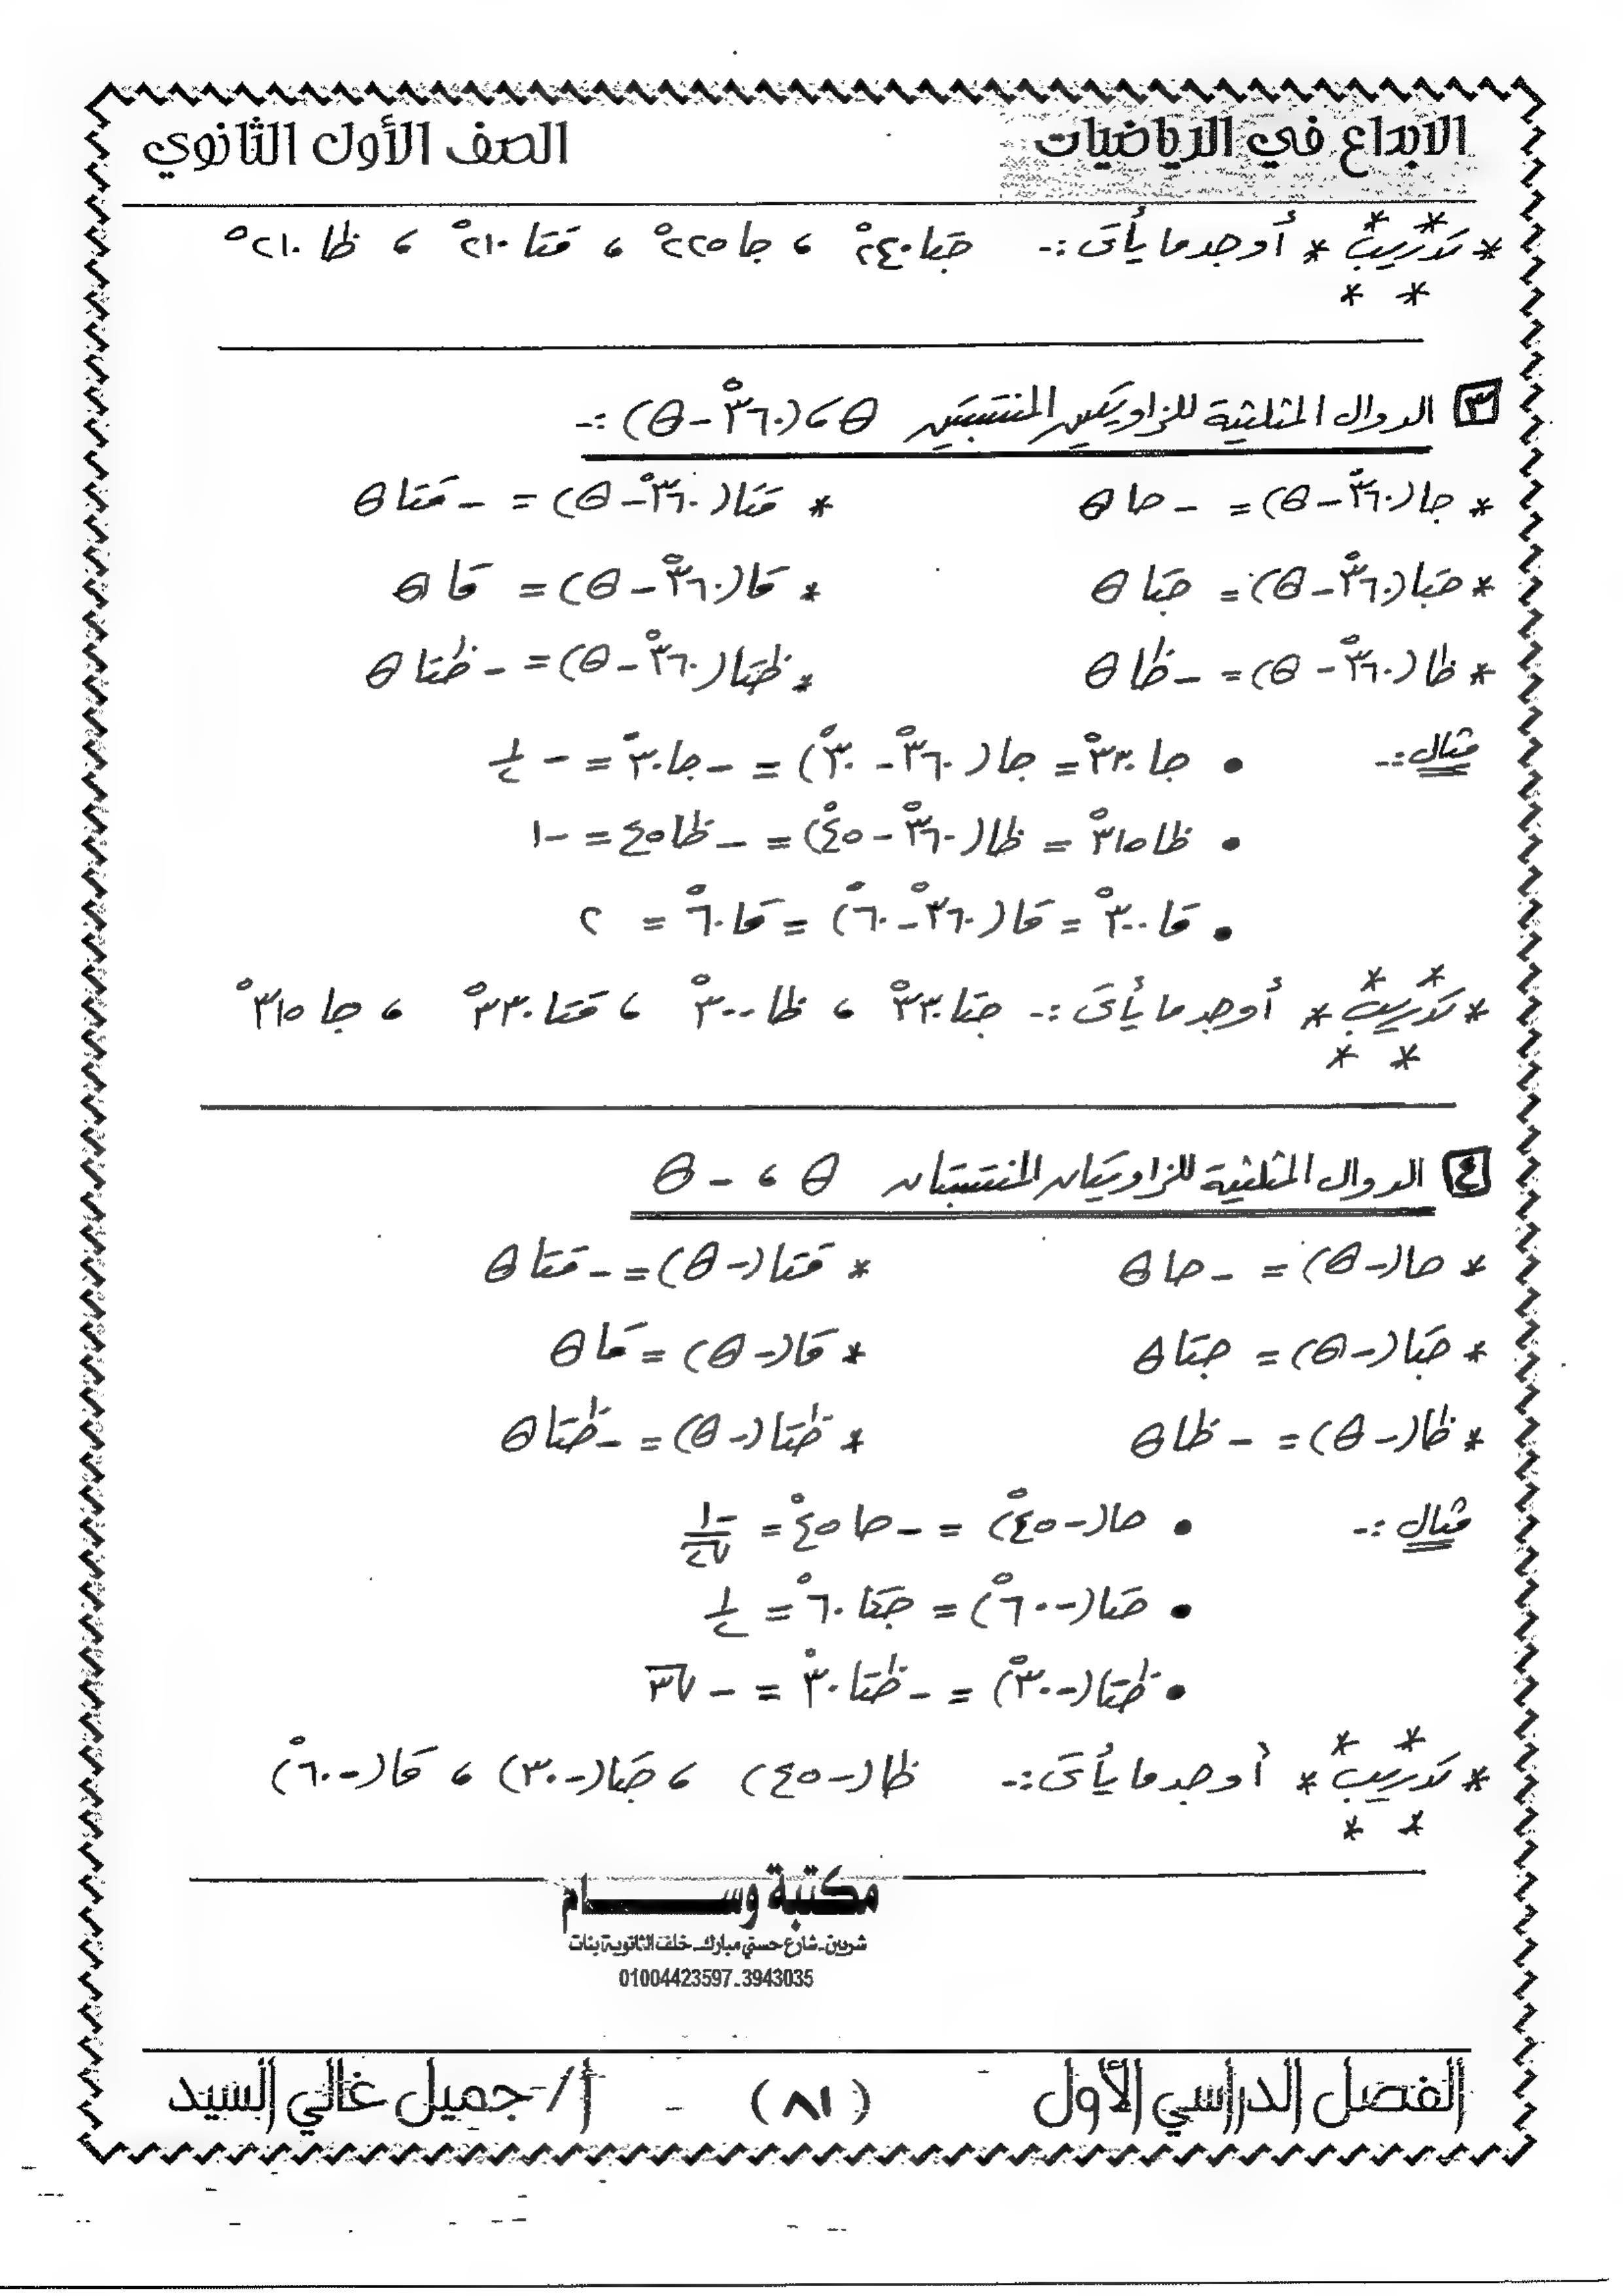 الابداع في الرياضيات الصف الأول الثانوي
* تدريب * أوجد ما يأتى :- جتا ٢٤٠° ، جا ٢٢٥° ، قتا ٢١٠° ، ظا ٢١٠°
٣ الدوال المثلثية للزاويتين المنتسبتين θ ، (٣٦٠° - θ) :-
* جا (٣٦٠° - θ) = - جا θ * قتا (٣٦٠° - θ) = - قتا θ
* جتا (٣٦٠° - θ) = جتا θ * قا (٣٦٠° - θ) = قا θ
* ظا (٣٦٠° - θ) = - ظا θ * ظتا (٣٦٠° - θ) = - ظتا θ
مثال :- • جا ٣٣٠° = جا (٣٦٠° - ٣٠°) = - جا ٣٠° = - ١/٢
• ظا ٣١٥° = ظا (٣٦٠° - ٤٥°) = - ظا ٤٥ = -١
• قا ٣٠٠° = قا (٣٦٠° - ٦٠°) = قا ٦٠° = ٢
* تدريب * أوجد ما يأتى :- جتا ٣٣٠° ، ظا ٣٠٠° ، قتا ٣٣٠° ، جا ٣١٥°
٤ الدوال المثلثية للزاويتان المنتسبتان θ ، - θ
* جا (- θ) = - جا θ * قتا (- θ) = - قتا θ
* جتا (- θ) = جتا θ * قا (- θ) = قا θ
* ظا (- θ) = - ظا θ * ظتا (- θ) = - ظتا θ
مثال :- • جا (- ٤٥°) = - جا ٤٥° = -١/√٢
• جتا (- ٦٠°) = جتا ٦٠° = ١/٢
• ظتا (- ٣٠°) = - ظتا ٣٠° = - √٣
* تدريب * أوجد ما يأتى :- ظا (- ٤٥) ، جتا (- ٣٠) ، قا (- ٦٠°)
مكتبة وســـام
شربين - شارع حسني مبارك - خلف الثانوية بنات
01004423597 - 3943035
الفصل الدراسي الأول (٨١) أ / جميل غالي السيد